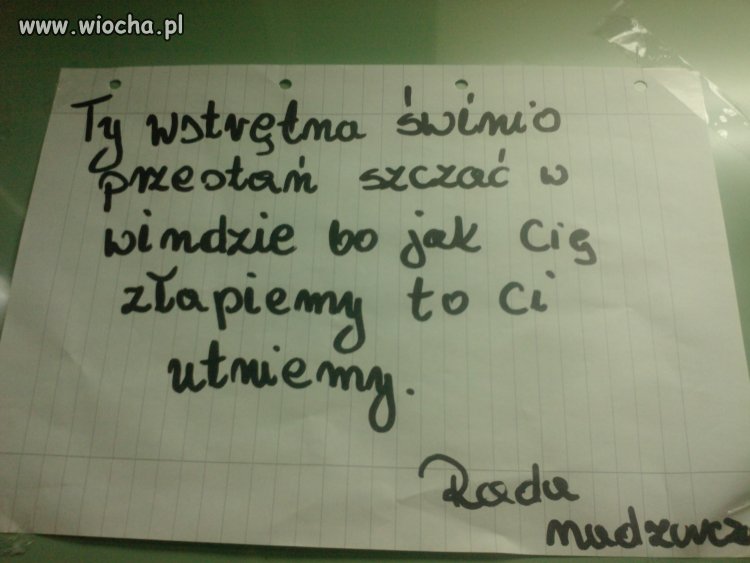 www.wiocha.pl
Ty wstrętna świnio
przestań szczać w
windzie bo jak Cię
złapiemy to Ci
utniemy.
Rada